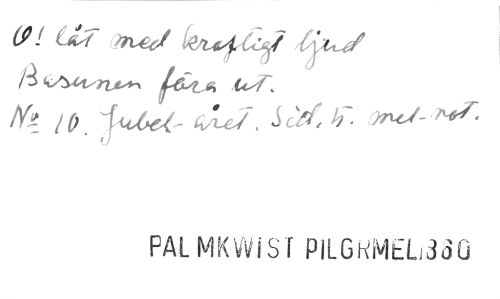 O! låt med kraftigt ljud
Basunen föra ut.
No 10. Jubel-året. Sid. 5. mel-not.
PALMKWIST PILGRMEL 1860